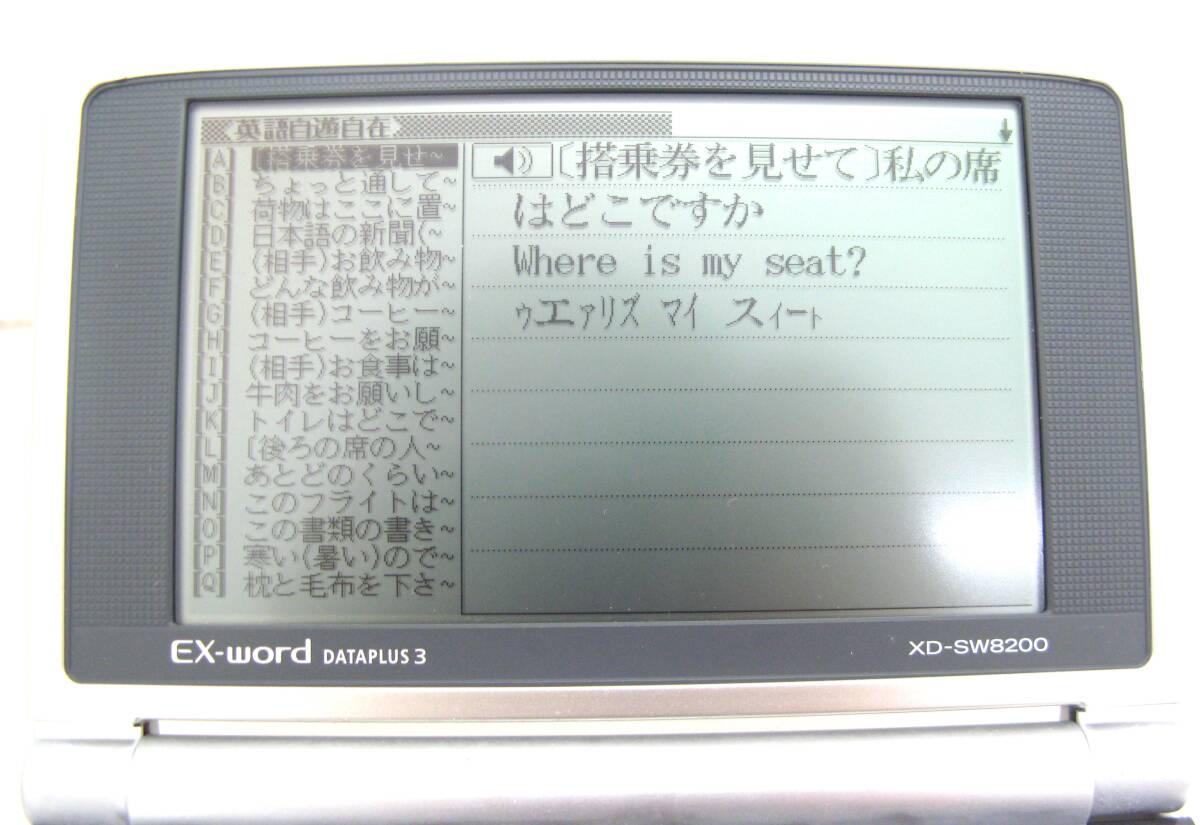 英語自遊自在
[A] 〔搭乗券を見せ~
[B] ちょっと通して~
[C] 荷物はここに置~
[D] 日本語の新聞(~
[E] (相手)お飲み物~
[F] どんな飲み物が~
[G] (相手)コーヒー~
[H] コーヒーをお願~
[I] (相手)お食事は~
[J] 牛肉をお願いし~
[K] トイレはどこで~
[L] 〔後ろの席の人~
[M] あとどのくらい~
[N] このフライトは~
[O] この書類の書き~
[P] 寒い(暑い)ので~
[Q] 枕と毛布を下さ~
〔搭乗券を見せて〕私の席
はどこですか
Where is my seat?
ゥエァリズ マイ スィート
EX-word DATAPLUS 3
XD-SW8200